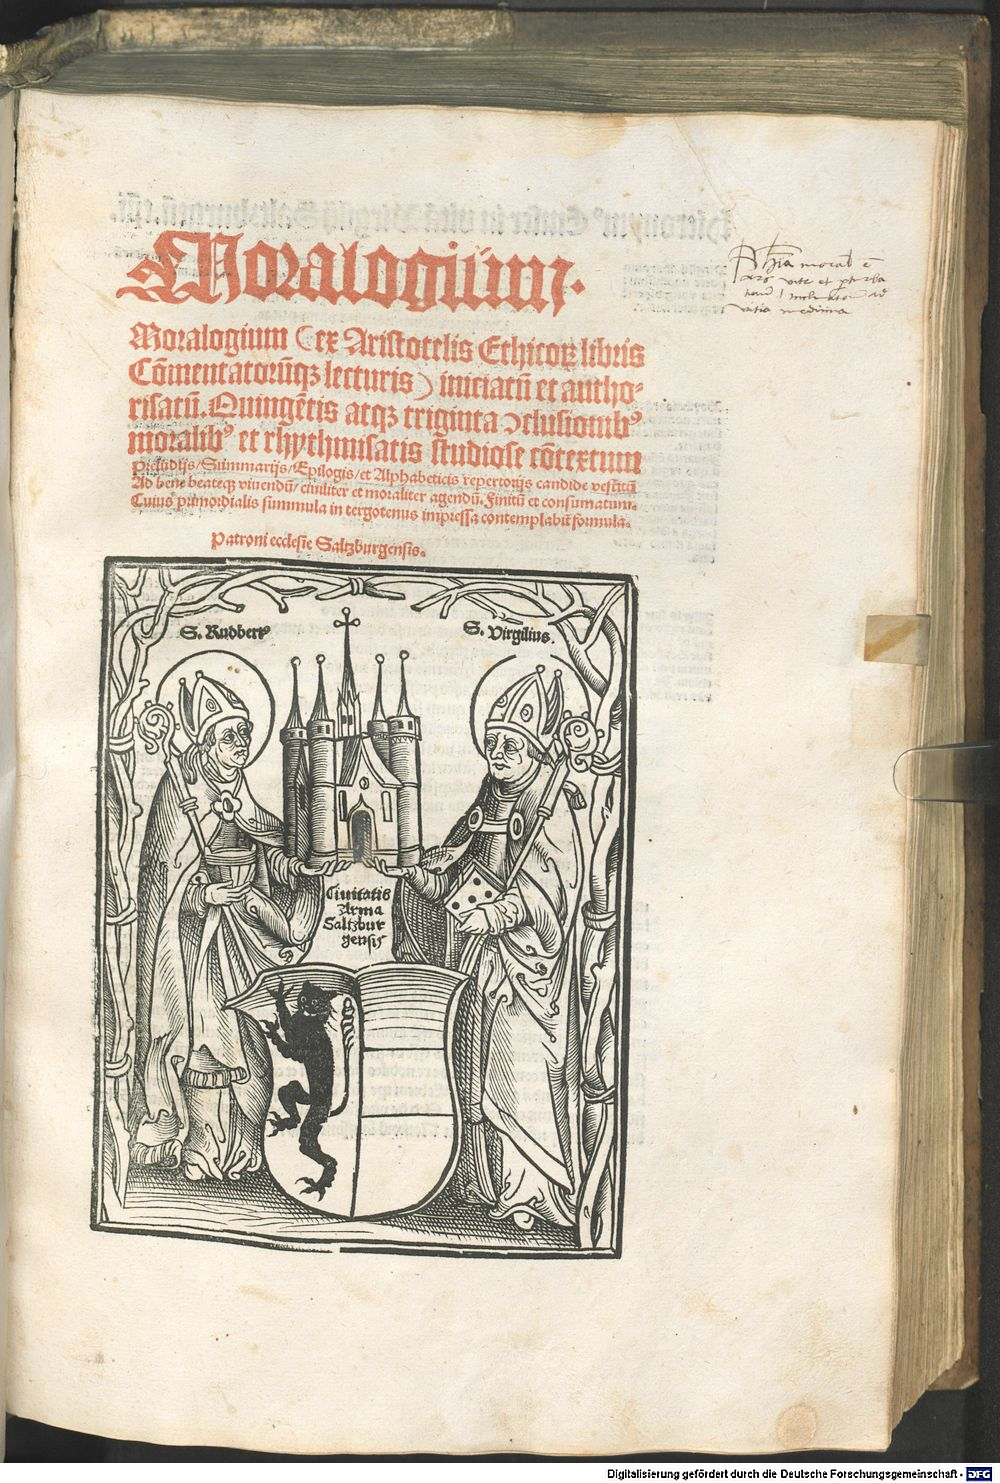 Moralogium.
Moralogium (ex Aristotelis Ethicoꝝ libris
Cōmentatorūqꝫ lecturis) iniciatū et autho-
risatū. Quingētis atqꝫ triginta ↄclusionibꝰ
moralibꝰ et rhythmisatis studiose cōtextum
Preludijs/Summarijs/Epilogis/et Alphabeticis repertorijs candide vestitū
Ad bene beateqꝫ viuendū/ciuiliter et moraliter agendū. Finitū et consumatum.
Cuius primordialis summula in tergotenus impressa contemplabit̄ formula.
Patroni ecclesie Saltzburgensis.
S. Rudbertꝰ
S. Virgilius.
Ciuitatis
Arma
Saltzbur
gensis
Phīa moral ē
ars vite et
ad
medicina
Digitalisierung gefördert durch die Deutsche Forschungsgemeinschaft - DFG